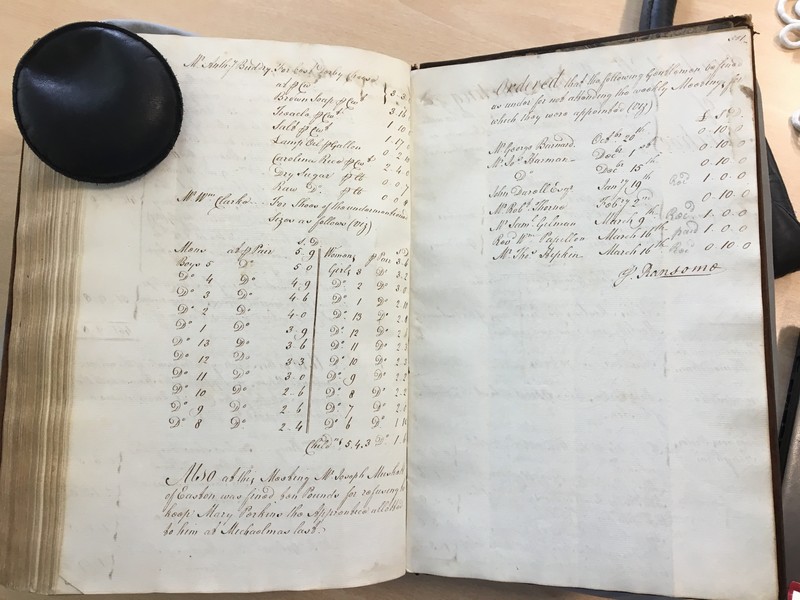 Mr. Anthy. Bindry For best
at p Cwt
Brown Soap p Cwt 3.16
Treacle p Cwt 1 10
Salt p Cwt 1.17
Lamp Oil p Gallon 0 2
Carolina Rice p Cwt 2 4 0
Dry Sugar p lb 0 0 7
Raw Do. p lb 0 0
Mr. Wm. Clarke For Shoes of the undermentioned
Sizes as follows (Viz)
S. D
Mens at p Pair 5 9 Womans p Pair
Boys 5 Do 5 0 Girls 3 Do
Do 4 Do 4 9 Do 2 Do
Do 3 Do 4 6 Do 1 Do
Do 2 Do 4 0 Do 13 Do
Do 1 Do 3 9 Do 12 Do
Do 13 Do 3 6 Do 11 Do
Do 12 Do 3 3 Do 10 Do
Do 11 Do 3 0 Do 9 Do
Do 10 Do 2 6 Do 8 Do
Do 9 Do 2 6 Do 7 Do
Do 8 Do 2 4 Do 6 Do
Childn. 5.4.3 Do
Also at this Meeting Mr. Joseph
of Easton was fined ten Pounds for refusing to
keep Mary Perkins the Apprentice allotted
to him at Michaelmas last.
Ordered that the following Gentlemen be fined
as under for not attending the weekly Meetings for
which they were appointed (Viz)
£ S D
Mr. George Barnard Octbr 20th 0 10 0
Mr. Jos. Harman Decbr 1st 0 10 0
Do Decbr 15th 0 10 0
John Darell Esqr Janry 19th Recd 1 0 0
Mr. Robt. Thorne Febry 2nd 0 10 0
Mr. Saml. Gilman March 9th Recd 1 0 0
Revd. Wm. Papillon March 16th paid 1 0 0
Mr. Thos. Hipkin March 16th Recd 0 10 0
P. Ransome